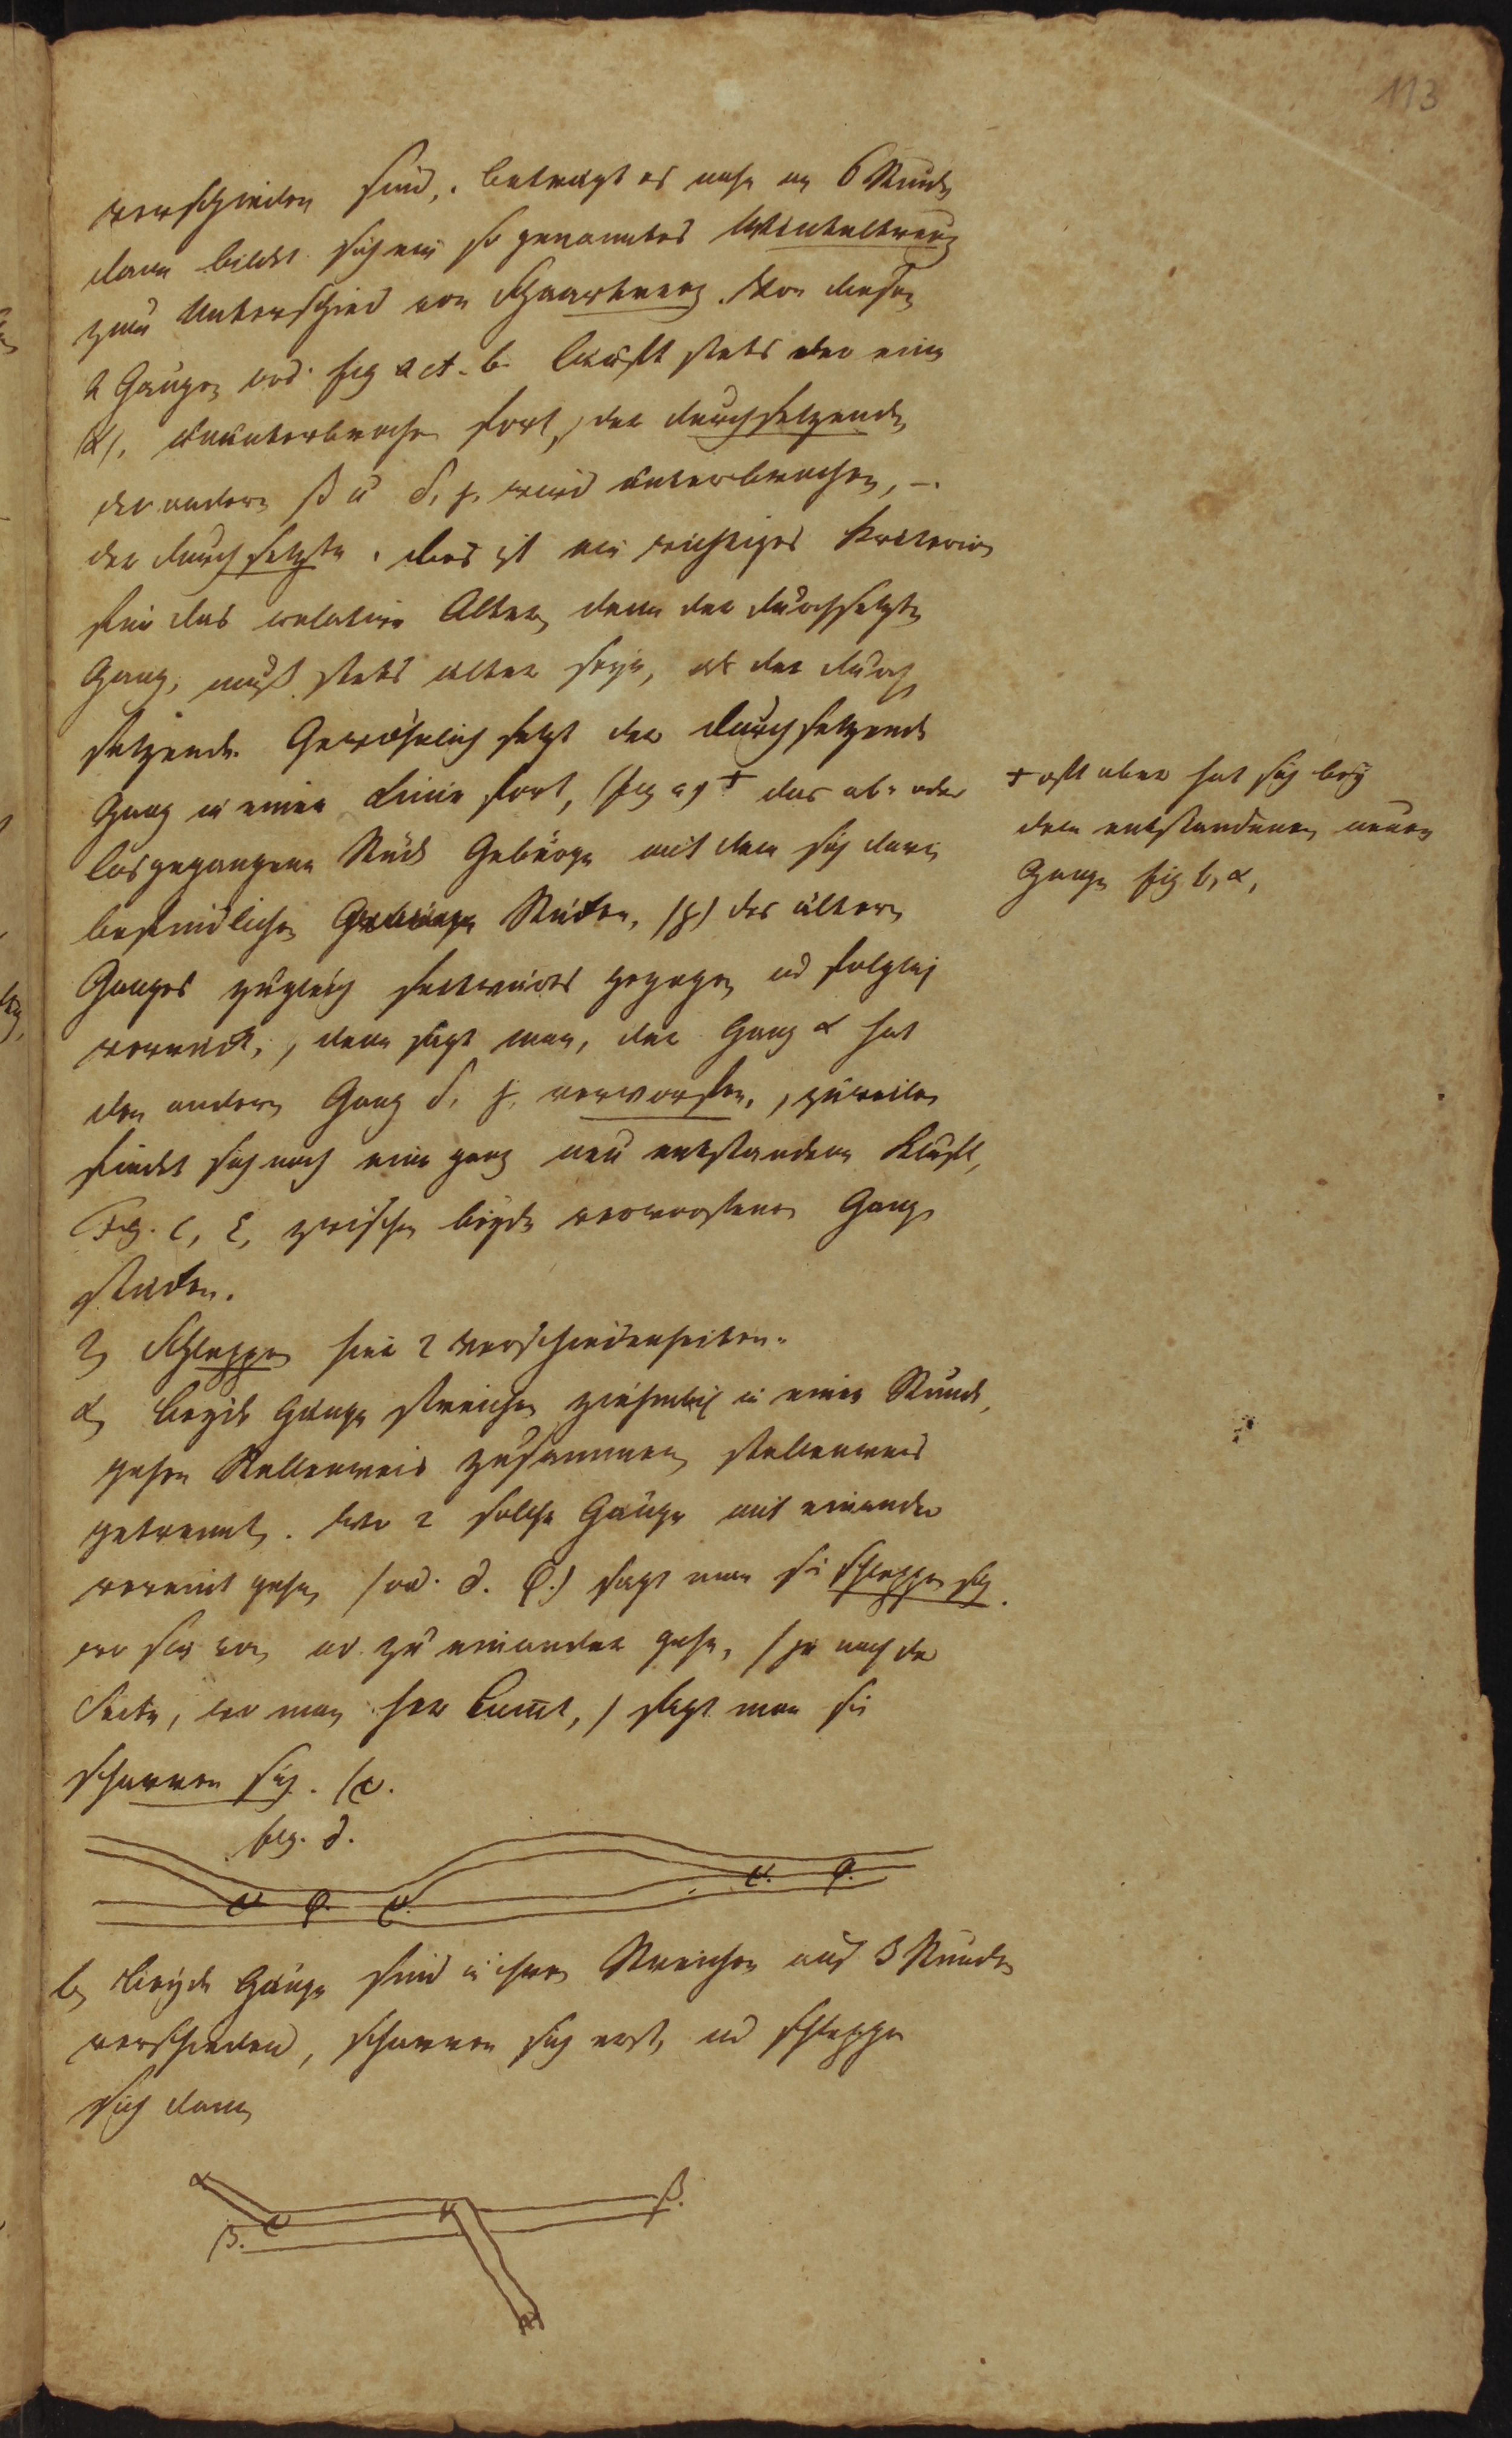 113
verschieden sind, beträgt es nahe an 6 Stunde
dann bildet sich ein so genanntes Winkelkreuz
zum Unterschied von Schaarkreuz. Von diesen
2 Gängen vid. fig a et. b. läuft stets der eine
(α), ununterbrochen fort, der durchsetzende,
der andere β u δ, γ, wird unterbrochen, –.
der durchsetzte. dies ist ein wichtiges Kriterium
für das relative Alter, denn der durchsetzte
Gang, muß stets älter seyn, als der durch
setzende. Gewöhnlich setzt der durchsetzende
Gang in einer Linie fort, (fig a) + das ab- oder
losgegangene Stück Gebürge mit dem sich darin
befindlichen Stücken, (γ) des ältern
Ganges zugleich seitwärts gezogen und folglich
verrückt, dann sagt man, der Gang α hat
den andern Gang δ, γ, verworfen, zuweilen
findet sich noch eine ganz neu entstandene Kluft,
Fig. c, ε, zwischen beyde verworfenen Gang
stücken.
+ oft aber hat sich bey
dem entstandenen neuen
Gange fig b, α,
2, Schleppen hier 2 Verschiedenheiten.
a, beyde Gänge streichen ziehmlich in einer Stunde,
gehen Stellenweis zusammen, stellenweis
getrennt. Wo 2 solche Gänge mit einander
vereint gehen, (vid. d. φ.) sagt man sie schleppen sich.
wo sie von od. zu einander gehn, (je nach der
Seite, wo man her kommt,) sagt man sie
schaaren sich. (υ.
fig. d.
υ φ. υ. υ. φ.
b, beyde Gänge sind in ihren Streichen auf 3 Stunden
verschieden, schaaren sich erst, und schleppen
sich dann
α υ υ β.
β.
α